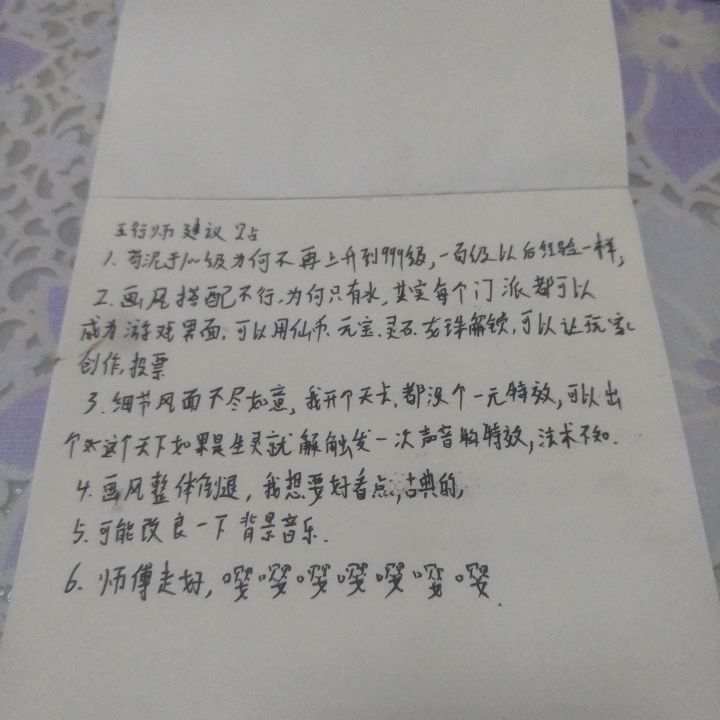 五行师 建议 7占
1. 苟泥于100级为何不再上升到999级,一百级以后经验一样,
2. 画风搭配不行.为何只有水,其实每个门派都可以
成为游戏界面,可以用仙币.元宝.灵石.龙珠解锁,可以让玩家
创作,投票
3. 细节风面不尽如意,我开个天卡,都没个一元特效,可以出
个 这个天下如果是生灵就 触发一次声音 特效,法术不知.
4. 画风整体倒退,我想要好看点,古典的,
5. 可能改良一下背景音乐.
6. 师傅走好,嘤嘤嘤嘤嘤嘤嘤.